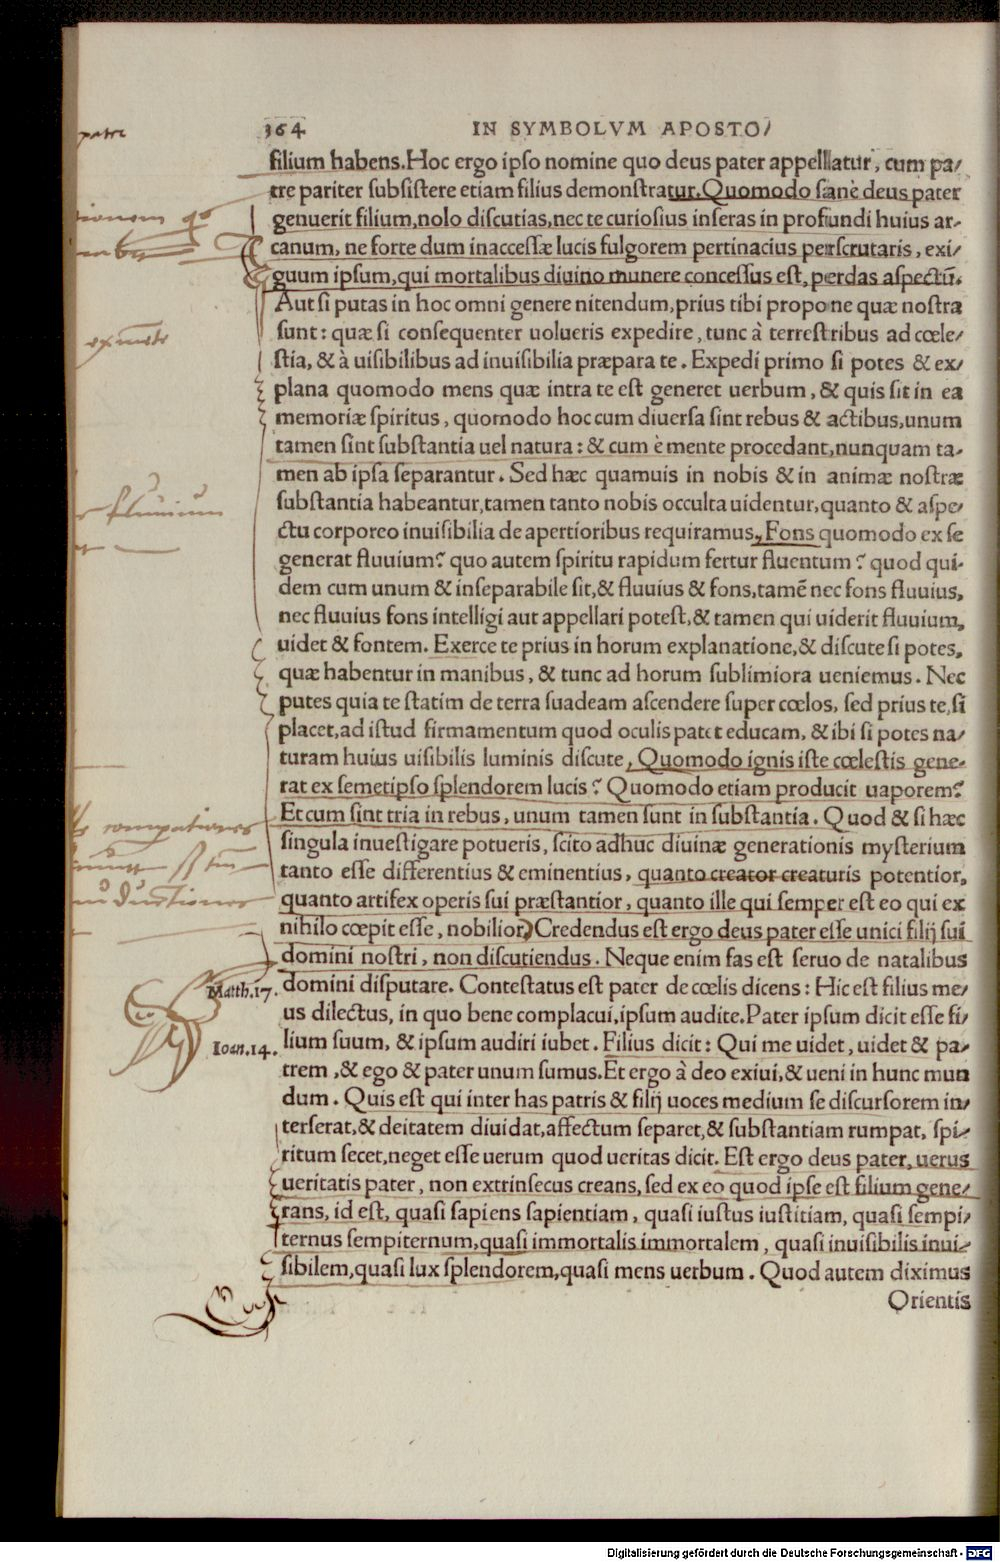 364 IN SYMBOLVM APOSTO/
filium habens.Hoc ergo ipso nomine quo deus pater appellatur, cum pa/
tre pariter subsistere etiam filius demonstratur.Quomodo sanè deus pater
genuerit filium,nolo discutias,nec te curiosius inseras in profundi huius ar-
canum, ne forte dum inaccessæ lucis fulgorem pertinacius perscrutaris, exi/
guum ipsum,qui mortalibus diuino munere concessus est, perdas aspectū.
Aut si putas in hoc omni genere nitendum,prius tibi propone quæ nostra
sunt: quæ si consequenter uolueris expedire, tunc à terrestribus ad cœle/
stia, & à uisibilibus ad inuisibilia præpara te. Expedi primo si potes & ex/
plana quomodo mens quæ intra te est generet uerbum, & quis sit in ea
memoriæ spiritus, quomodo hoc cum diuersa sint rebus & actibus,unum
tamen sint substantia uel natura: & cum è mente procedant,nunquam ta-
men ab ipsa separantur. Sed hæc quamuis in nobis & in animæ nostræ
substantia habeantur,tamen tanto nobis occulta uidentur,quanto & aspe/
ctu corporeo inuisibilia de apertioribus requiramus, Fons quomodo ex se
generat fluuium? quo autem spiritu rapidum fertur fluentum? quod qui-
dem cum unum & inseparabile sit,& fluuius & fons,tamē nec fons fluuius,
nec fluuius fons intelligi aut appellari potest,& tamen qui uiderit fluuium,
uidet & fontem. Exerce te prius in horum explanatione,& discute si potes,
quæ habentur in manibus, & tunc ad horum sublimiora ueniemus. Nec
putes quia te statim de terra suadeam ascendere super cœlos, sed prius te,si
placet,ad istud firmamentum quod oculis patet educam, & ibi si potes na/
turam huius uisibilis luminis discute, Quomodo ignis iste cœlestis gene-
rat ex semetipso splendorem lucis? Quomodo etiam producit uaporem?
Et cum sint tria in rebus, unum tamen sunt in substantia. Quod & si hæc
singula inuestigare potueris, scito adhuc diuinæ generationis mysterium
tanto esse differentius & eminentius, quanto creator creaturis potentior,
quanto artifex operis sui præstantior, quanto ille qui semper est eo qui ex
nihilo cœpit esse, nobilior) Credendus est ergo deus pater esse unici filij sui
domini nostri, non discutiendus. Neque enim fas est seruo de natalibus
Matth.17. domini disputare. Contestatus est pater de cœlis dicens: Hic est filius me/
us dilectus, in quo bene complacui,ipsum audite.Pater ipsum dicit esse fi/
Ioan.14. lium suum, & ipsum audiri iubet. Filius dicit: Qui me uidet, uidet & pa-
trem ,& ego & pater unum sumus.Et ergo à deo exiui,& ueni in hunc mun
dum. Quis est qui inter has patris & filij uoces medium se discursorem in/
terserat,& deitatem diuidat,affectum separet,& substantiam rumpat, spi-
ritum secet,neget esse uerum quod ueritas dicit. Est ergo deus pater, uerus
ueritatis pater, non extrinsecus creans, sed ex eo quod ipse est filium gene/
rans, id est, quasi sapiens sapientiam, quasi iustus iustitiam, quasi sempi/
ternus sempiternum,quasi immortalis immortalem, quasi inuisibilis inui-
sibilem,quasi lux splendorem,quasi mens uerbum. Quod autem diximus
Orientis
Digitalisierung gefördert durch die Deutsche Forschungsgemeinschaft - DFG